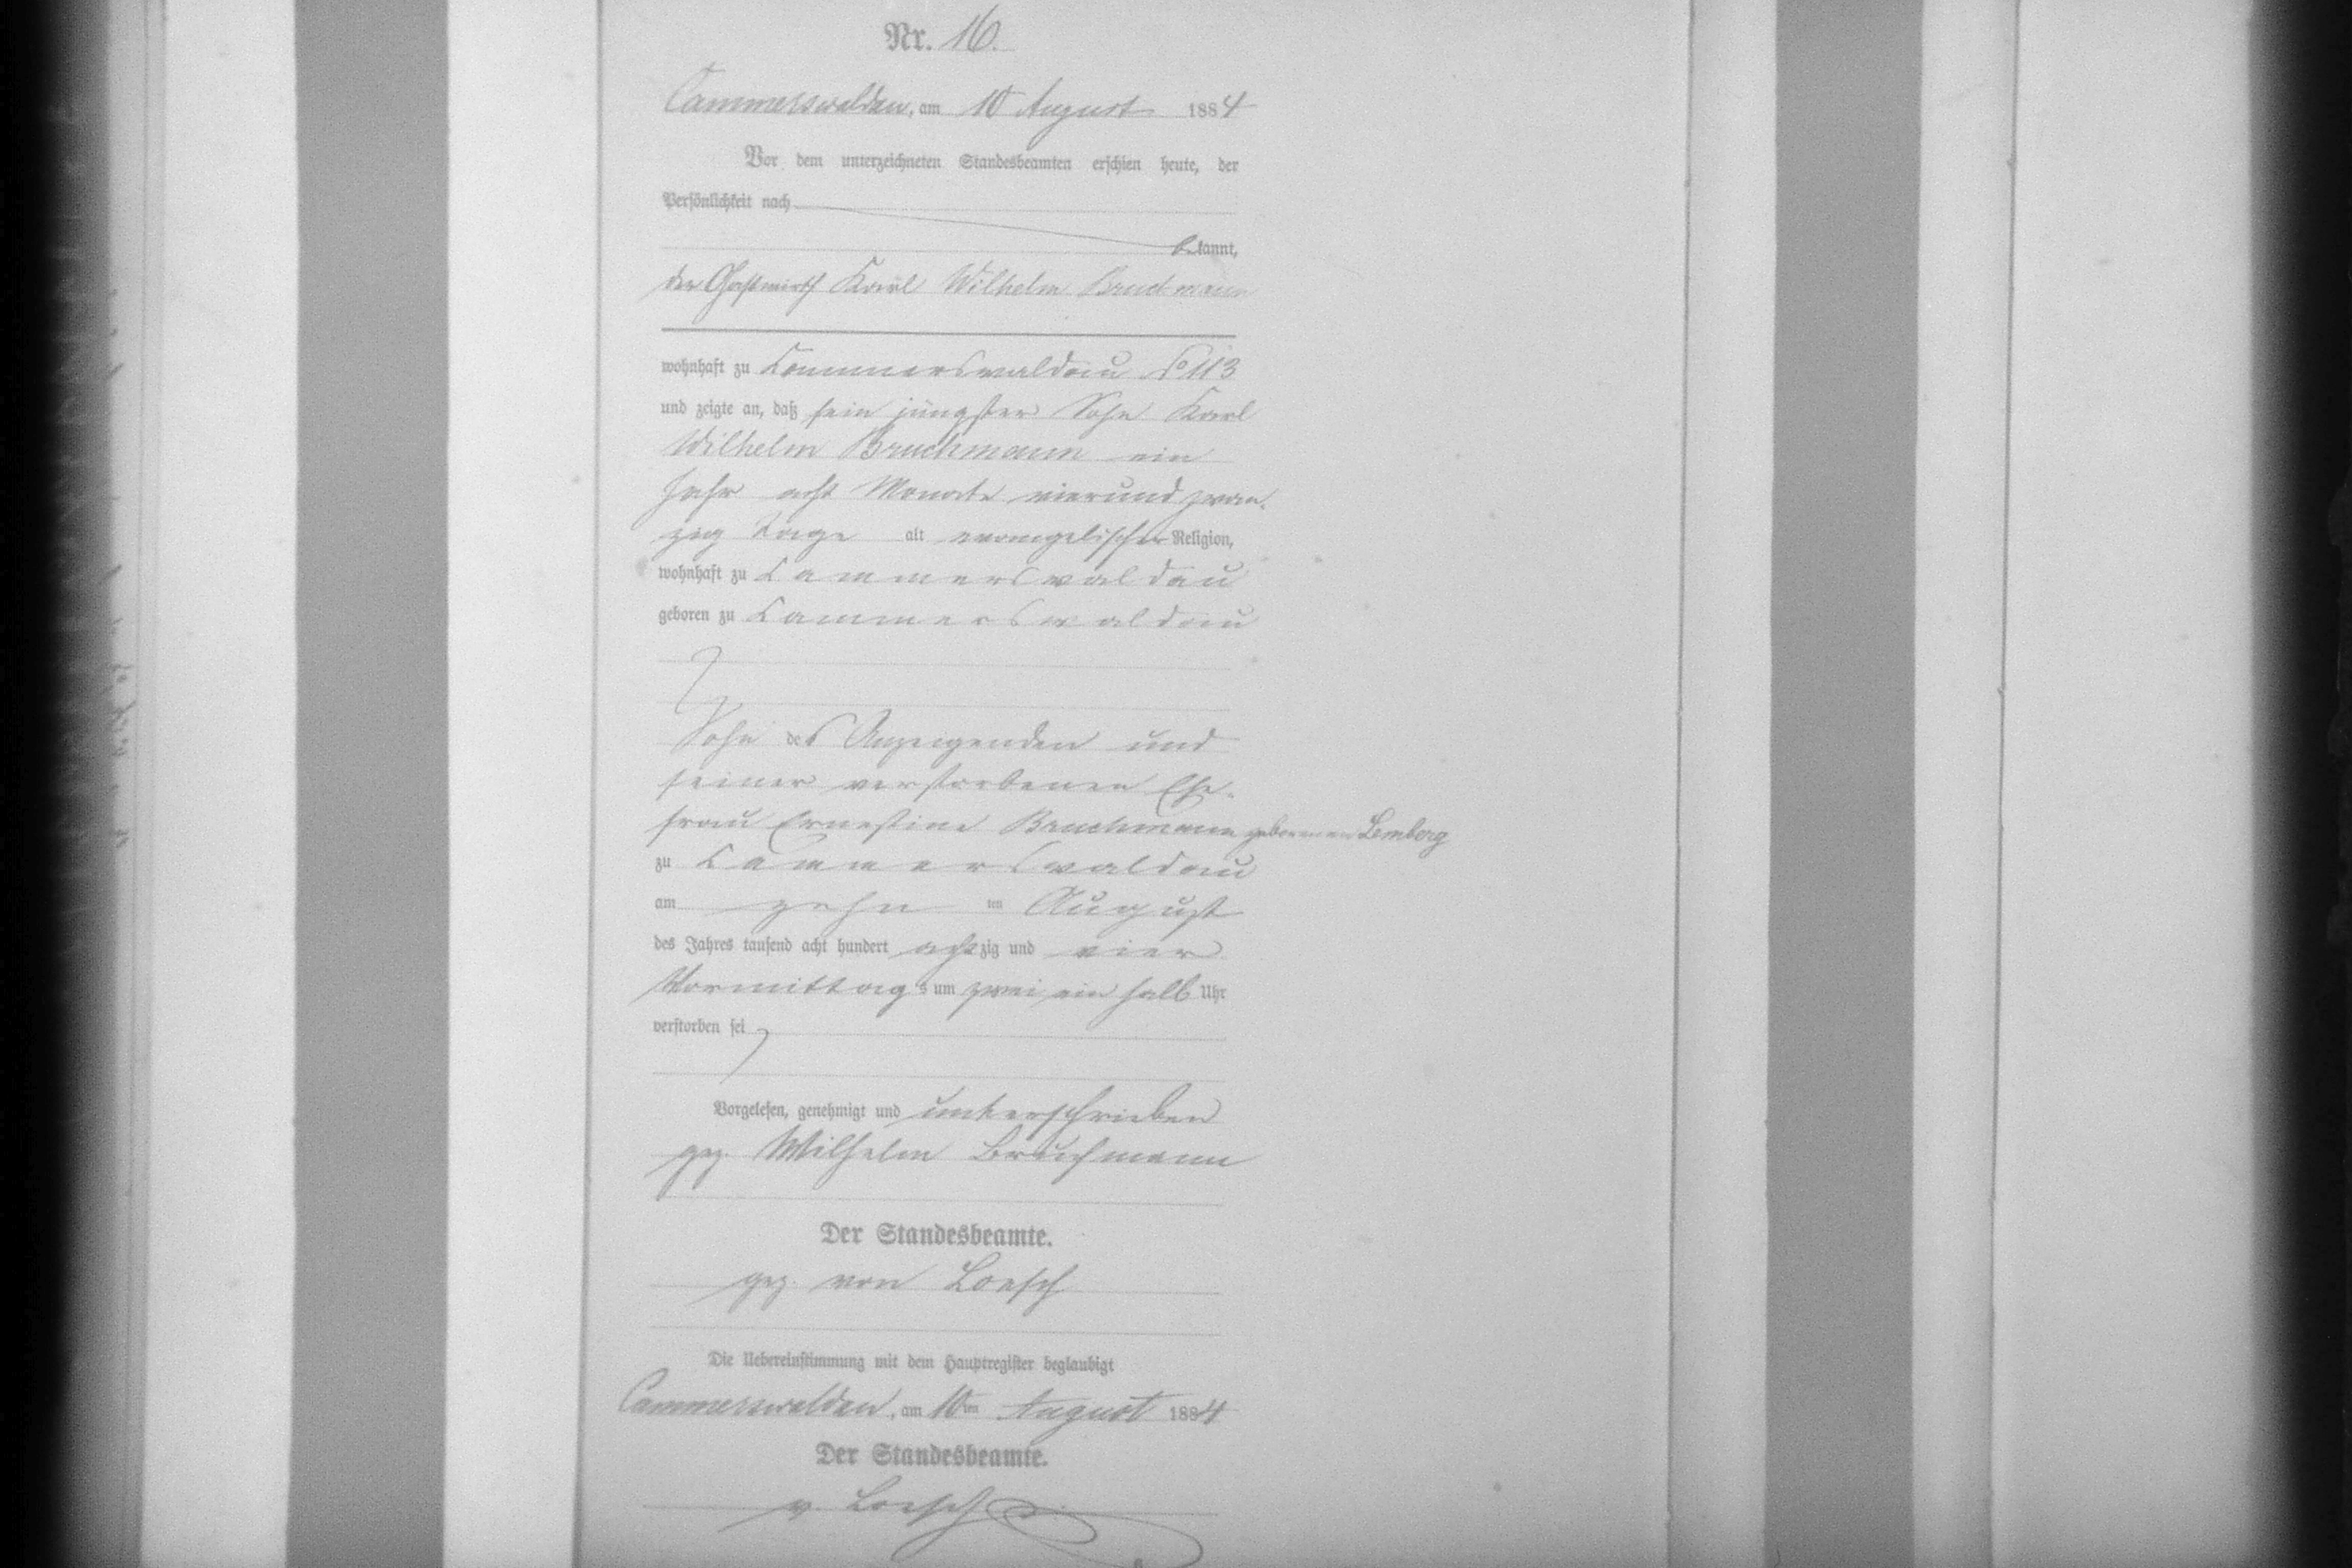 Nr. 16.
Cammerswaldau, am 10 August 1884
Vor dem unterzeichneten Standesbeamten erschien heute, der
Persönlichkeit nach
bekannt,
der Gastwirth Karl Wilhelm Bruchmann
wohnhaft zu Cammerswaldau No 113
und zeigte an, daß sein jüngster Sohn Karl
Wilhelm Bruchmann ein
Jahr acht Monate vierund zwan-
zig Tage alt evangelischer Religion,
wohnhaft zu Cammerswaldau
geboren zu Cammerswaldau
Sohn des Anzeigenden und
seiner verstorbenen Ehe-
frau Ernestine Bruchmann geborenen Lemberg
zu Cammerswaldau
am zehn ten August
des Jahres tausend acht hundert achtzig und vier
Vormittags um zwei ein halb Uhr
verstorben sei
Vorgelesen, genehmigt und unterschrieben
gez. Wilhelm Bruchmann
Der Standesbeamte.
gez. von Loesch
Die Uebereinstimmung mit dem Hauptregister beglaubigt
Cammerswaldau, am 10ten August 1884
Der Standesbeamte.
v. Loesch